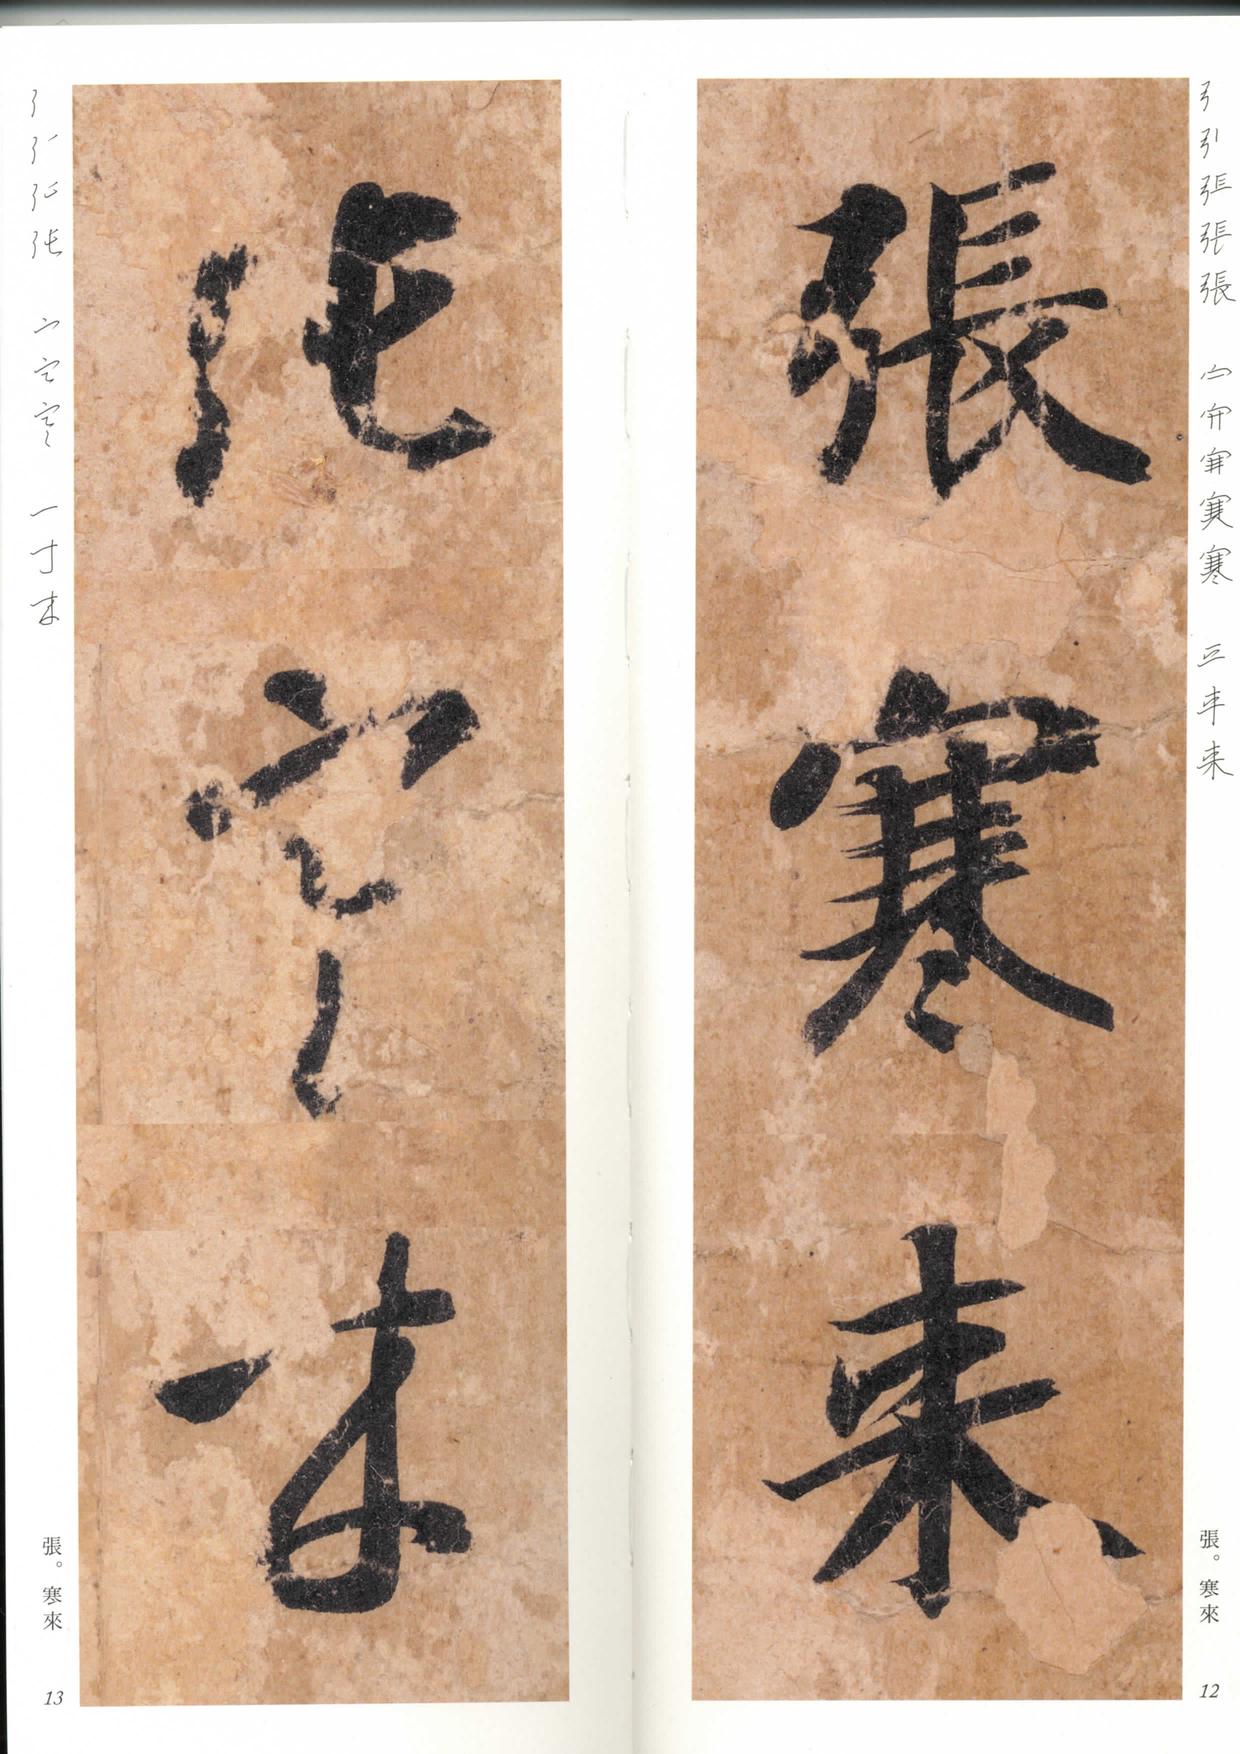 張寒来
張。寒來
12
張寒来
張。寒來
13